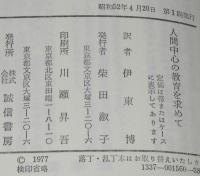 昭和52年4月20日 第1刷発行
人間中心の教育を求めて
定価は箱またはケース
に表示してあります
訳者 伊東博
発行者 柴田淑子
東京都文京区大塚三-二〇-六
印刷所 川瀬昇吾
東京都北区東田端一-八-一〇
東京都文京区大塚三-二〇-六
発行所 株式会社 誠信書房
© 1977
検印省略
落丁・乱丁本はお取り替えいたし
1337-001560-38